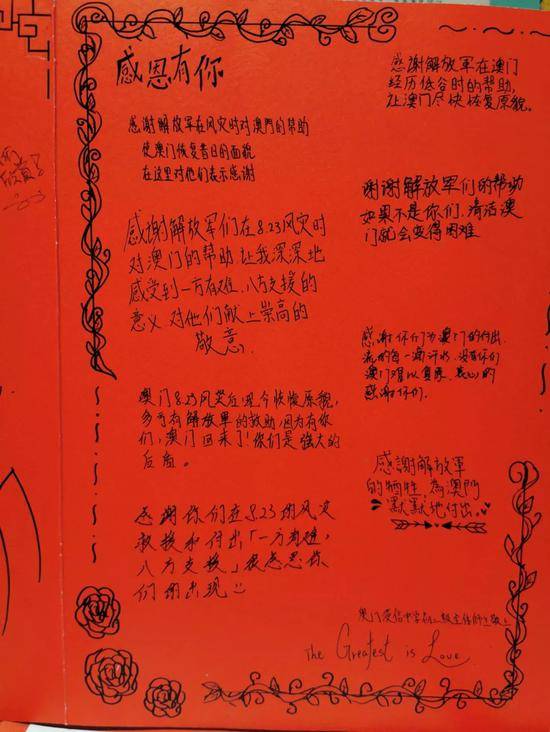 感恩有你
感谢解放军在风灾时对澳門的帮助
使澳门恢复昔日的面貌
在这里对他们表示感谢
感谢解放军们在8.23风灾时
对澳门的帮助,让我深深地
感受到一方有难,八方支援的
意义.对他们献上崇高的
敬意.
澳门8.23风灾后,现今恢復原貌,
多亏有解放軍的救助,因为有你
们,澳门回来了!你们是强大的
后盾。
感谢你们在8.23的风灾
救援和付出「一方有难,
八方支援」很感恩你
们的出现
感谢解放军在澳门
经历低谷时的帮助,
让澳门尽快恢复原貌。
谢谢解放军们的帮助
如果不是你们,清洁澳
门就会变得困难
感谢你们为澳门的付出
流的每一滴汗水,没有你们
澳门难以复原,衷心的
感谢你们.
感謝解放軍
的犧牲,為澳門
默默地付出。
The Greatest is Love